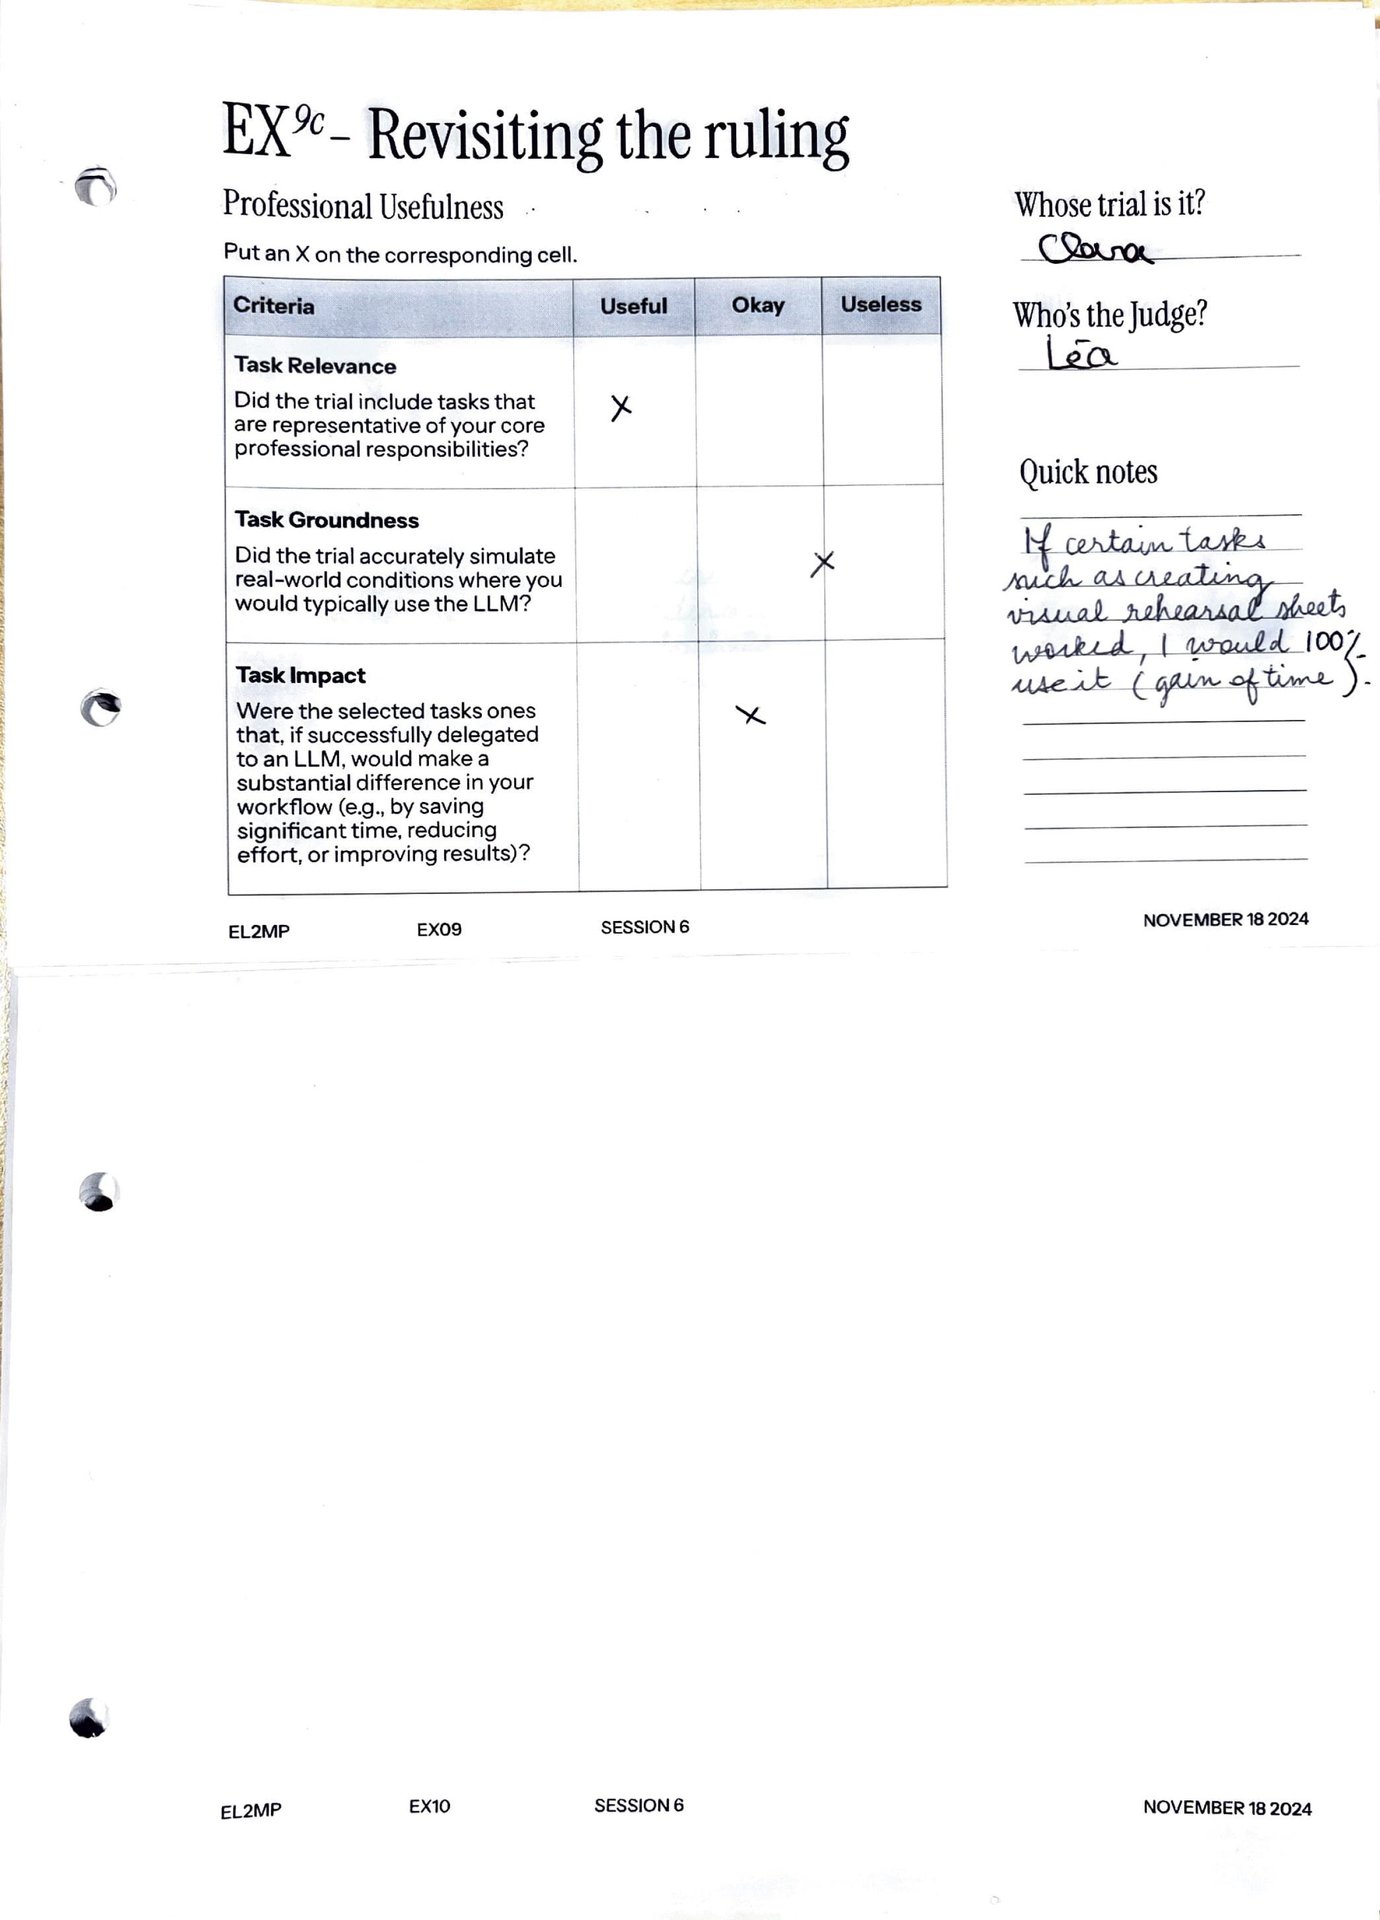 EX9c – Revisiting the ruling
Professional Usefulness
Put an X on the corresponding cell.
Criteria Useful Okay Useless
Task Relevance
Did the trial include tasks that
are representative of your core
professional responsibilities?
X
Task Groundness
Did the trial accurately simulate
real-world conditions where you
would typically use the LLM?
X
Task Impact
Were the selected tasks ones
that, if successfully delegated
to an LLM, would make a
substantial difference in your
workflow (e.g., by saving
significant time, reducing
effort, or improving results)?
X
Whose trial is it?
Clara
Who's the Judge?
Léa
Quick notes
If certain tasks
such as creating
visual rehearsal sheets
worked, I would 100%
use it (gain of time).
EL2MP EX09 SESSION 6 NOVEMBER 18 2024
EL2MP EX10 SESSION 6 NOVEMBER 18 2024